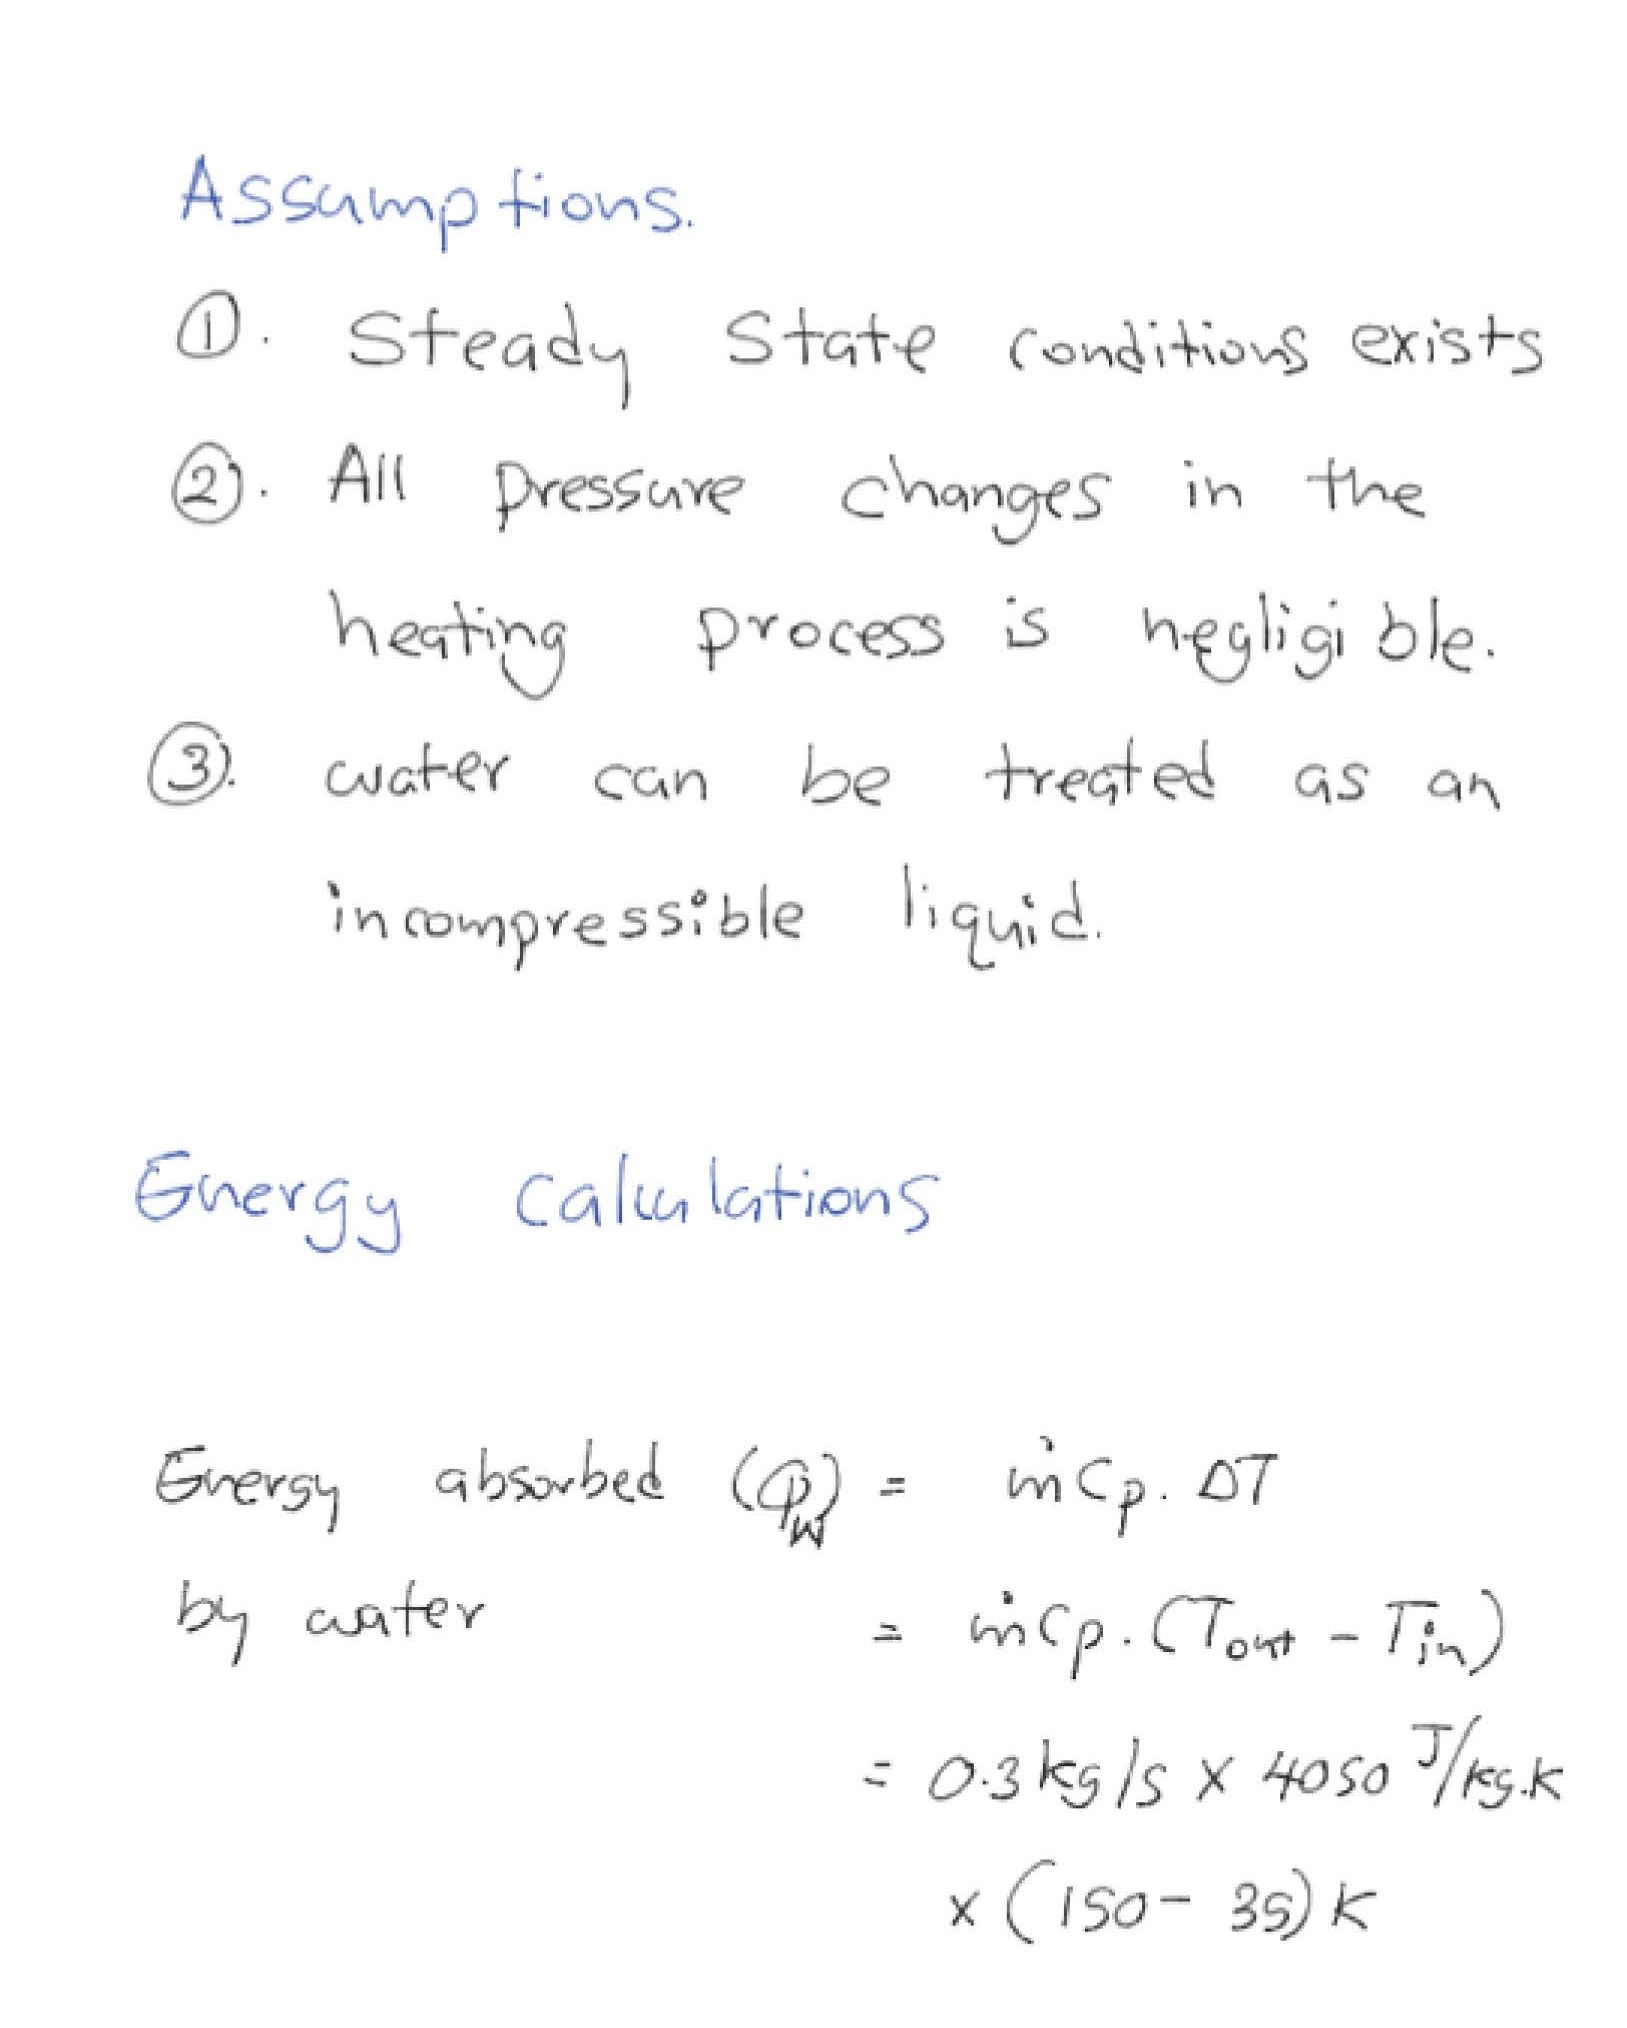 Assumptions.
①. Steady State conditions exists
②. All pressure changes in the
heating process is negligible.
③. water can be treated as an
incompressible liquid.
Energy calculations
Energy absorbed (Qw) = ṁCp. ΔT
by water = ṁCp. (Tout - Tin)
= 0.3 kg/s x 4050 J/kg.K
x (150 - 35) K